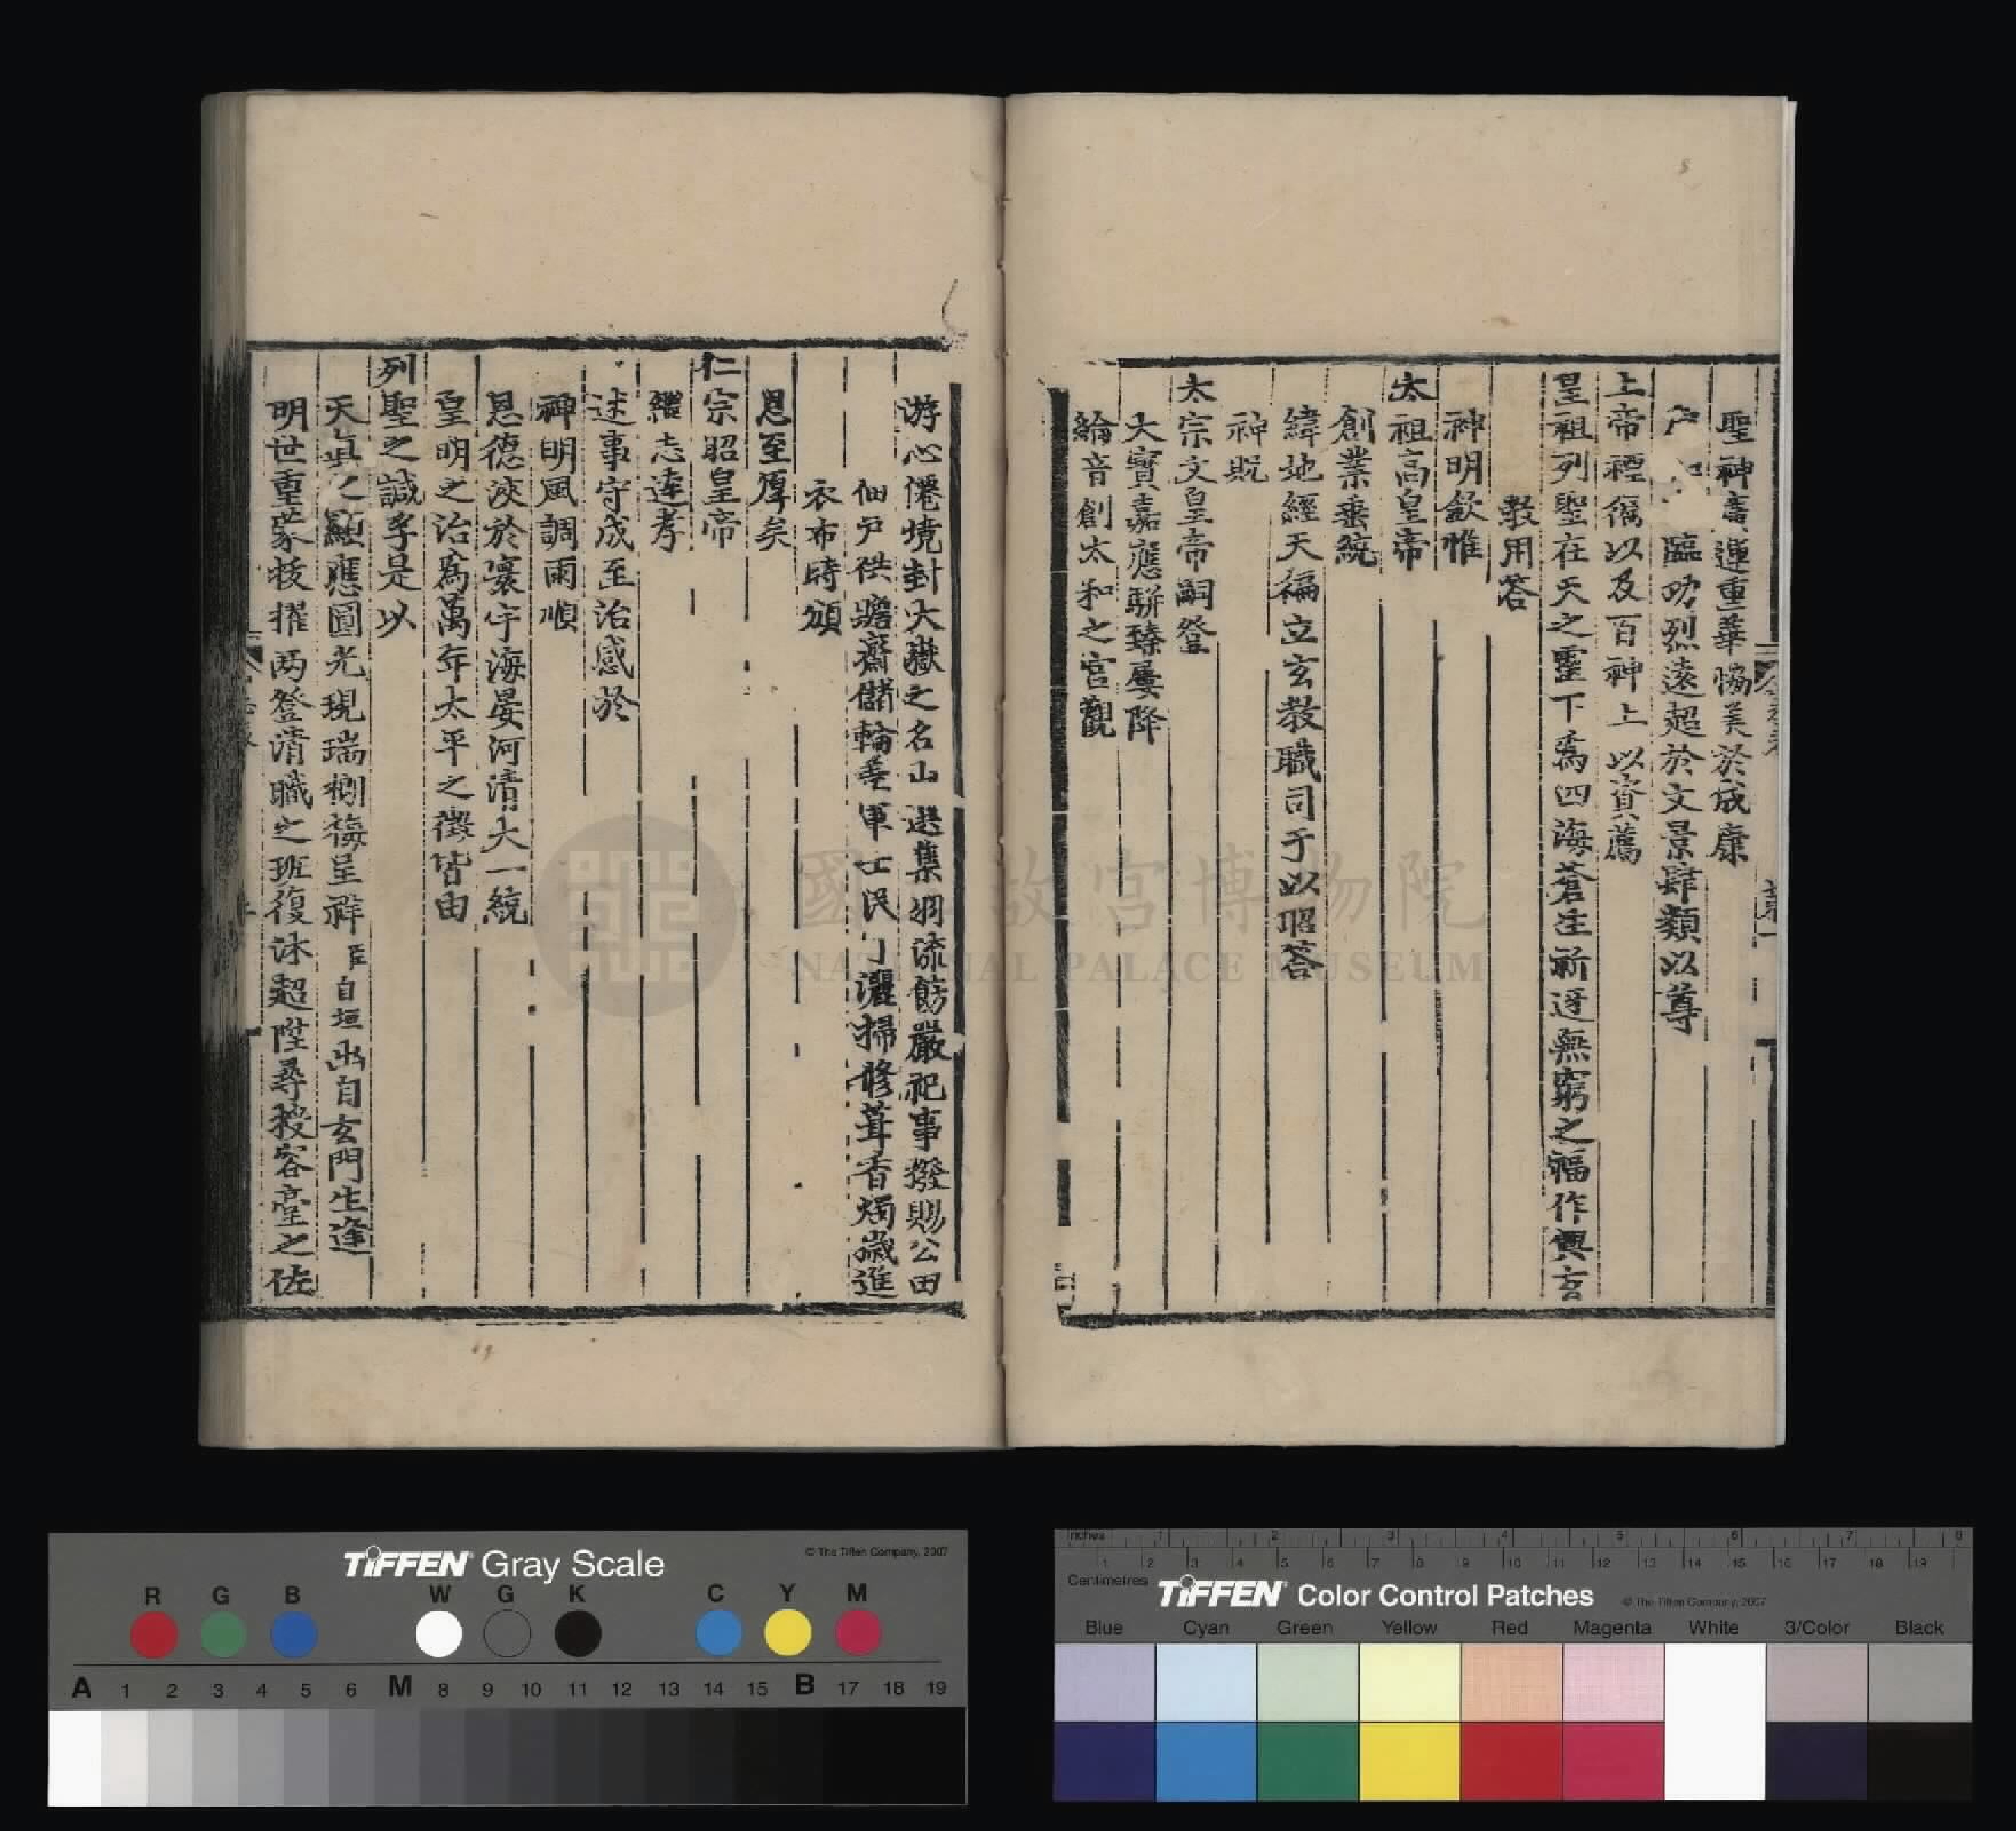 聖神膺運重華協美於成康
臨功烈遠超於文景肆類以尊
上帝禋偏以及百神上以資薦
皇祖列聖在天之靈下為四海蒼生祈迓無窮之福作興玄
教用答
神明欽惟
太祖高皇帝
創業垂統
緯地經天徧立玄教職司于以昭答
神貺
太宗文皇帝嗣登
大寶嘉應駢臻屢降
綸音創太和之宮觀
游心僊境封大嶽之名山選集羽流飭嚴祀事撥賜公田
佃戶供贍齋儲輪垂軍士民丁灑掃修葺香燭歲進
衣布時頒
恩至厚矣
仁宗昭皇帝
繼志達孝
述事守成至治感於
神明風調雨順
恩德浹於寰宇海晏河清大一統
皇明之治為萬年太平之徵皆由
列聖之誠孚是以
天真之顯應圓光現瑞榔梅呈祥臣自垣出自玄門生逢
明世重蒙拔擢兩登清職之班復沐超陞尋授容臺之佐
國立故宮博物院
NATIONAL PALACE MUSEUM
TIFFEN Gray Scale
© The Tiffen Company, 2007
R G B W G K C Y M
A 1 2 3 4 5 6 M 8 9 10 11 12 13 14 15 B 17 18 19
Inches 1 2 3 4 5 6 7 8
1 2 3 4 5 6 7 8 9 10 11 12 13 14 15 16 17 18 19
Centimetres
TIFFEN Color Control Patches
© The Tiffen Company, 2007
Blue Cyan Green Yellow Red Magenta White 3/Color Black